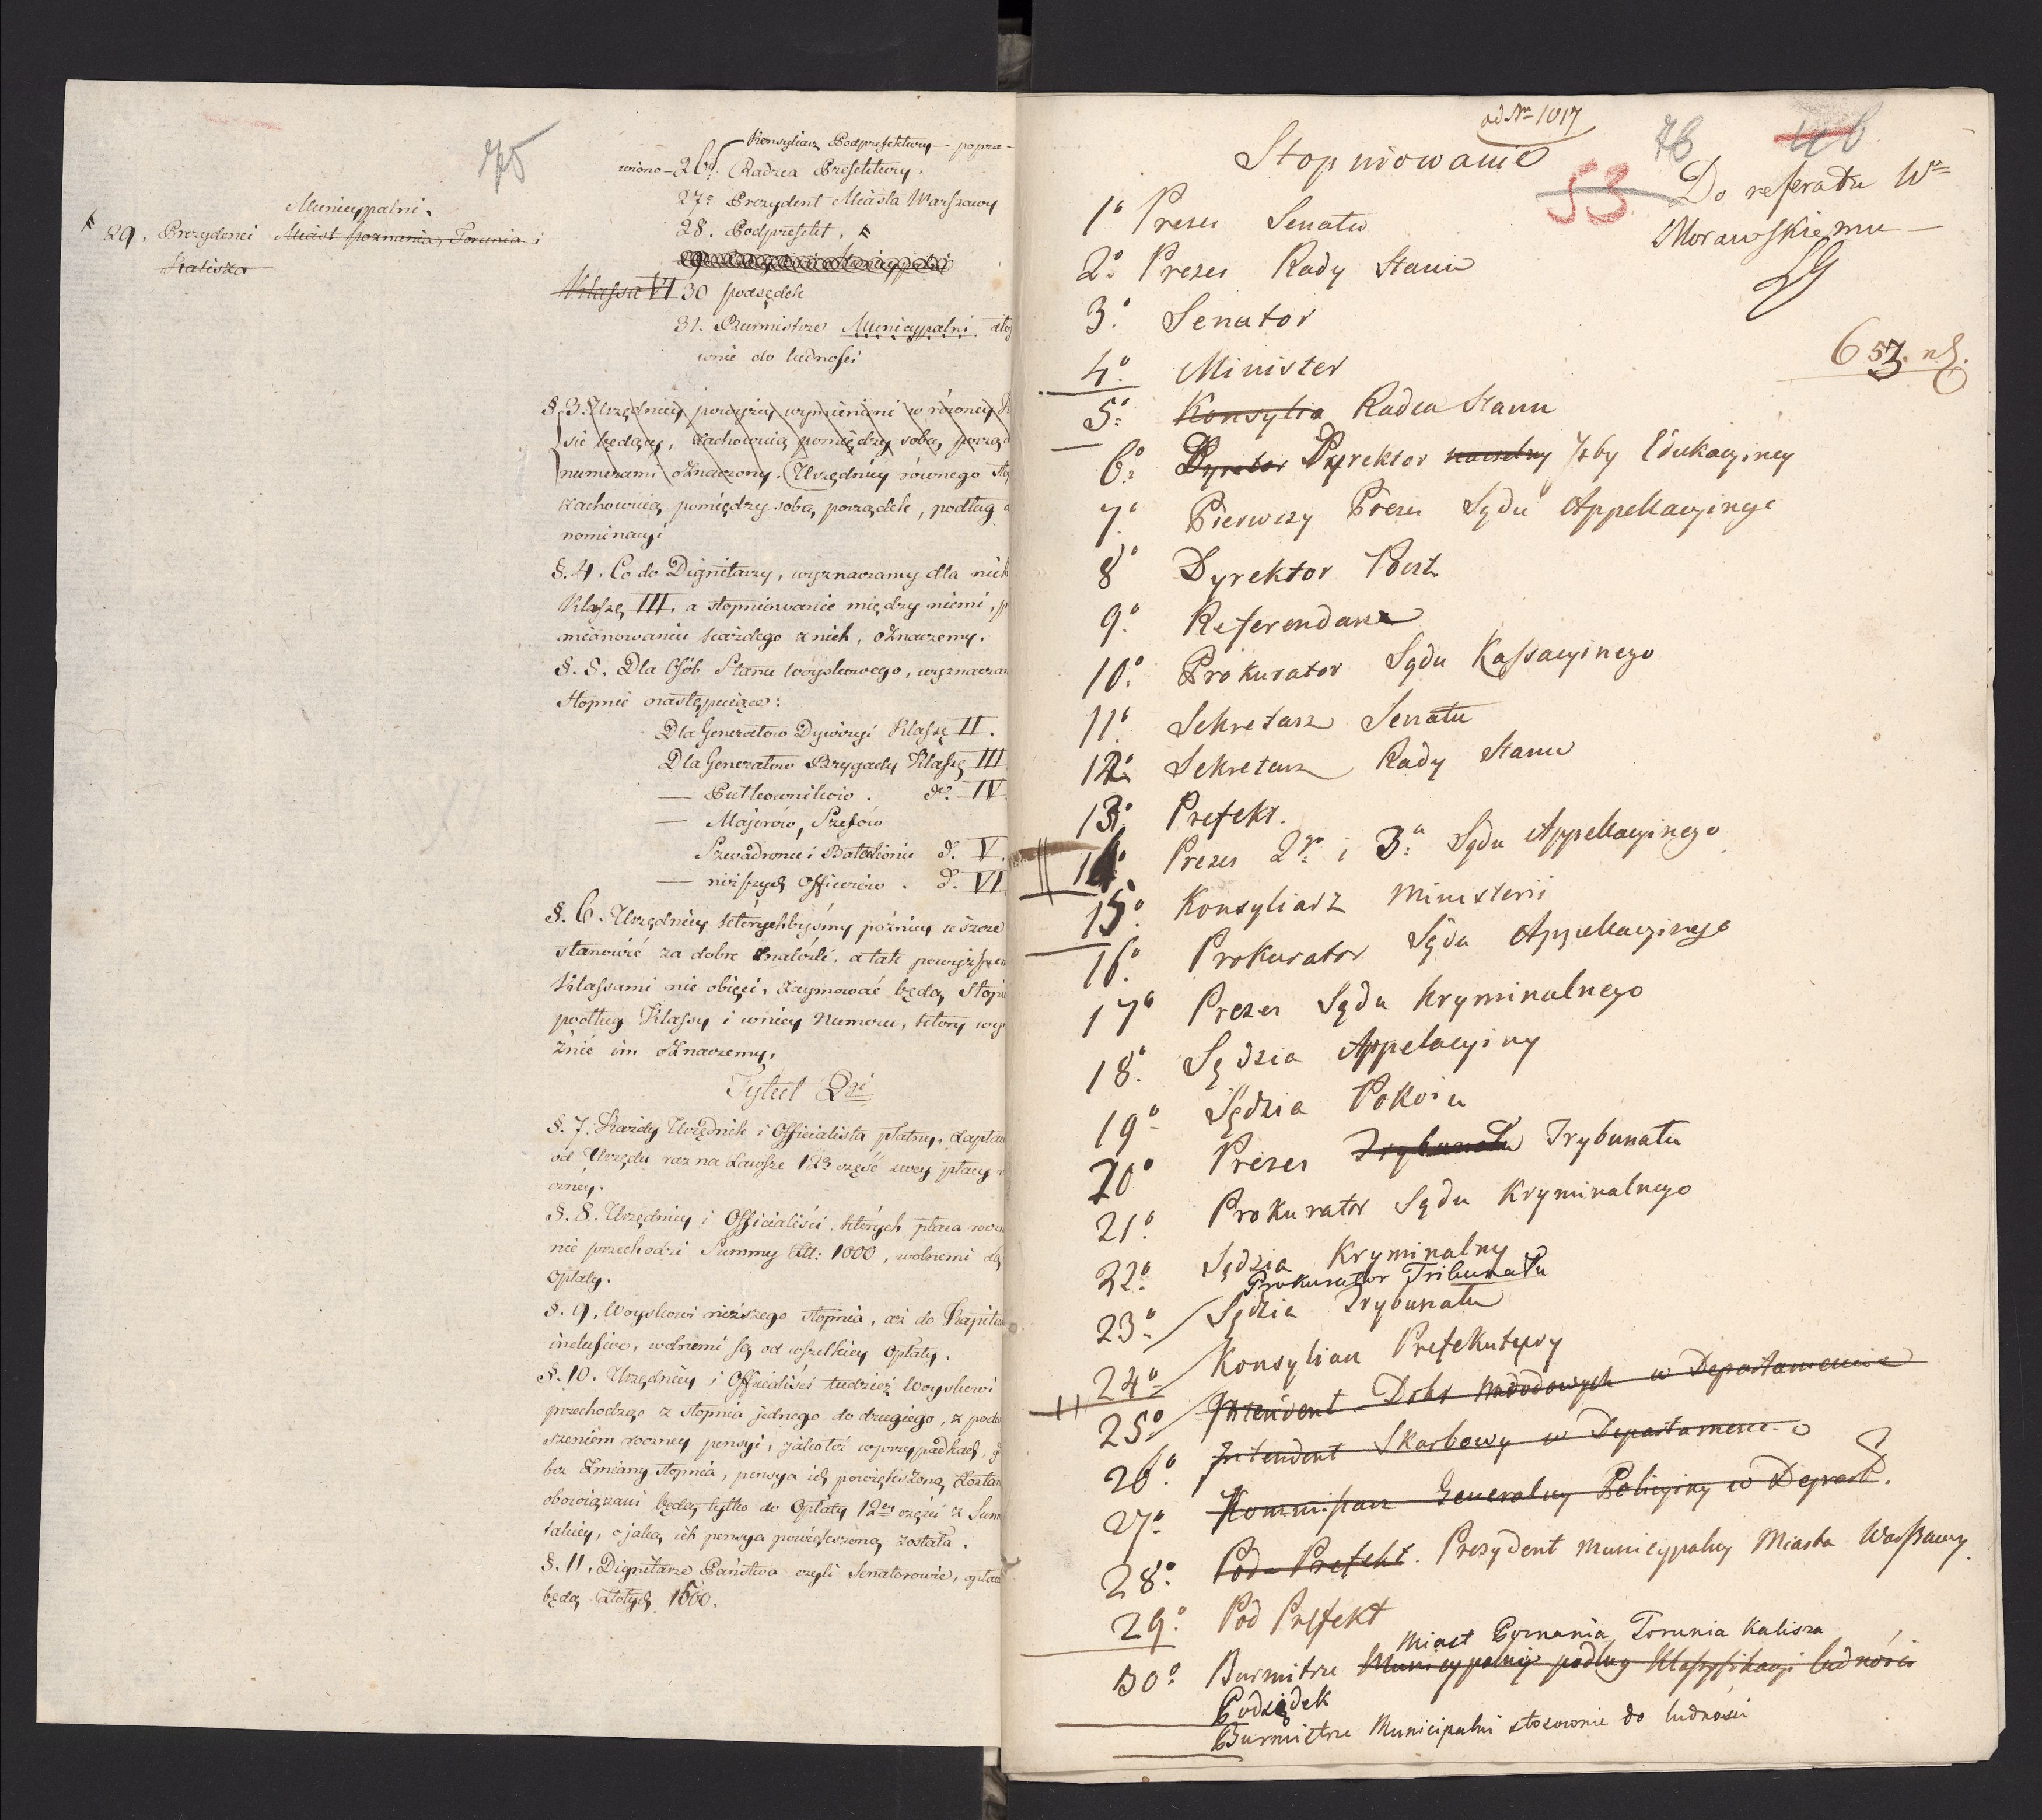 75
Konsyliarz Podprefektury — popra-
wiono — 26. Radzca Prefektury.
27. Prezydent Miasta Warszawy
28. Podprefekt.
Municypalni.
29. Prezydenci Miast Poznania, Torunia i
Kalisza
Klassa VI 30 podsędek
31. Burmistrze Municypalni stos
wnie do ludności
§. 3. Urzędnicy powyżey wymienieni w równey K
sie będący, zachowuią pomiędzy sobą, porząd
numerami oznaczony. Urzędnicy równego sto
zachowuią pomiędzy sobą, porządek, podług
nominacyi
§. 4. Co do Dignitarzy, wyznaczamy dla nich
Klassę III. a stopniowanie między niemi, p
mianowaniu każdego z nich, oznaczemy.
§. 5. Dla Osób Stanu woyskowego, wyznaczam
stopnie następuiące:
Dla Generałów Dywizyi Klassę II.
Dla Generałów Brygady Klassę III
— Pułkowników. do. IV.
— Majorów, Szefów
Szwadronu i Batalionu d. V.
— niższych Officerów. d. VI
§. 6. Urzędnicy którychbyśmy póżniey ieszcze
stanowić za dobre znaleźli, a tak powyższem
Klassami nie obięci, zaymować będą, stopi
podług Klassy i w niey Numeru, który wy
źnie im oznaczemy.
Tytuł 2gi
§. 7. Każdy Urzędnik i Officialista płatny, zapłac
od Urzędu raz na zawsze 12ą część swey płacy r
czney.
§. 8. Urzędnicy i Officialiści, których płaca roczn
nie przechodzi Summy Złł: 1000, wolnemi są
opłaty.
§. 9. Woyskowi niższego stopnia, aż do Kapita
inclusive, wolnemi są od wszelkiey opłaty.
§. 10. Urzędnicy i Officialiści tudzież Woyskowi
przechodząc z stopnia jednego do drugiego, z podw
szeniem roczney pensyi, jakoteż w przypadkach, g
bez zmiany stopnia, pensya ich powiększoną zostan
obowiązani będą tylko do opłaty 12ey części z Sum
takiey, o jaką ich pensya powiększoną została.
§. 11. Dignitarze Państwa czyli Senatorowie, opłac
będą Złotych 1500.
ad Nr 1017
Stopniowanie
53
76
46
Do referatu Wo
Morawskiemu —
653.
1o Prezes Senatu
2o Prezes Rady Stanu
3o Senator
4o Minister
5o Konsylia Radca Stanu
6o Dyretor Dyrektor naczelny Izby Edukacyiney
7o Pierwszy Prezes Sądu Appellacyinego
8o Dyrektor Poczt
9o Referendarz
10o Prokurator Sądu Kassacyinego
11o Sekretarz Senatu
12o Sekretarz Rady Stanu
13o Prefekt.
14o Prezes 2o i 3o Sądu Appellacyinego
15o Konsyliarz Ministerii
16o Prokurator Sądu Appellacyinego
17o Prezes Sądu Kryminalnego
18o Sędzia Appelacyiny
19o Sędzia Pokoiu
20o Prezes Trybunału Trybunału
21o Prokurator Sądu Kryminalnego
22o Sędzia Kryminalny
Prokurator Tribunału
23o Sędzia Trybunału
24o Konsyliarz Prefektury
25o Intendent Dobr Narodowych w Departamencie
26o Intendent Skarbowy w Departamencie
27o Kommissarz Generalny Policyiny w Depart.
28o Pod-Prefekt. Prezydent Municypalny Miasta Warszawy.
29o Pod Prefekt
Miast Poznania, Torunia Kalisza
30o Burmitrze Municypalni podług klassyfikacyi ludności
Podsędek
Burmistrze Municipalni stosownie do ludności